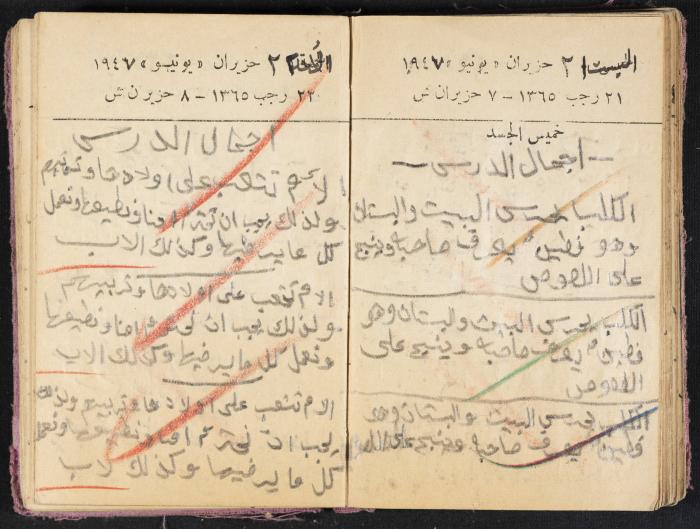 ٢١ حزيران «يونيو» ١٩٤٧
٢١ رجب ١٣٦٥ - ٧ حزيران ش
خميس الجسد
اجمال الدرس
الكلب يحرس البيت والبستان
وهو فطين يعرف صاحبه وينبح
على اللصوص
الكلب يحرس البيت والبستان وهو
فطين يعرف صاحبه وينبح على
اللصوص
الكلب يحرس البيت والبستان وهو
فطين يعرف صاحبه وينبح على
٢ حزيران «يونيو» ١٩٤٧
٢٢ رجب ١٣٦٥ - ٨ حزيران ش
اجمال الدرس
الام تتعب على اولادها وتربيهم
ولذلك يجب ان نحترم امنا ونطيعها ونعمل
كل ما يرضيها وكذلك الاب
الام تتعب على اولادها وتربيهم
ولذلك يجب ان نحترم امنا ونطيعها
ونعمل كل ما يرضيها وكذلك الاب
الام تتعب على اولادها وتربيهم
يجب ان نحترم امنا ونطيعها ونعمل
كل ما يرضيها وكذلك لاب